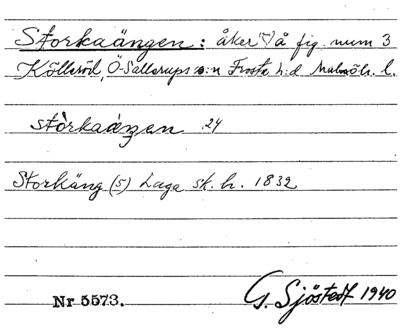 Storkaängen: åker ♡ å fig. num 3
Kölleröd, Ö. Sallerups s:n Frosta h:d Malmöh. l.
stòrkaáŋen 24
Storkäng (s) Laga sk. h. 1832
Nr 5573. G. Sjöstedt 1940